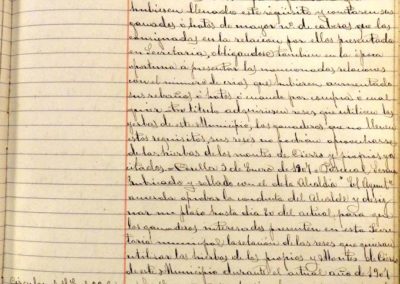 hubiesen llenado este requisito y contaren sus
ganados ó hatos de mayor nº de cabezas que las
consignadas en la relacion por ellos presentada
en Secretaria, obligandose tambien en la época
oportuna á presentar las mencionadas relaciones
con el número de crias que hubieren aumentado
sus rebaños ó hatos; ó cuando por compra ó cual
quier otro titulo adquiriesen reses que utilicen las
yerbas de este Municipio, los ganaderos que no llenen
estos requisitos, sus reses no podrian aprovecharse
de las hierbas de los montes de Cierro y propios ya
citados = 3 de Enero de 1907 = Pascual
Rubricado y sellado con el de la Alcaldia = El Aynt.º
acuerda aprobar la conducta del Alcalde y desig
nar un plazo hasta dia 20 del actual, para que
los ganaderos interesados presenten en esta Secre
taria municipal la relacion de las reses que quieran
utilizar las hierbas de los propios y Montes de Cierro
de este Municipio durante el actual año de 1907